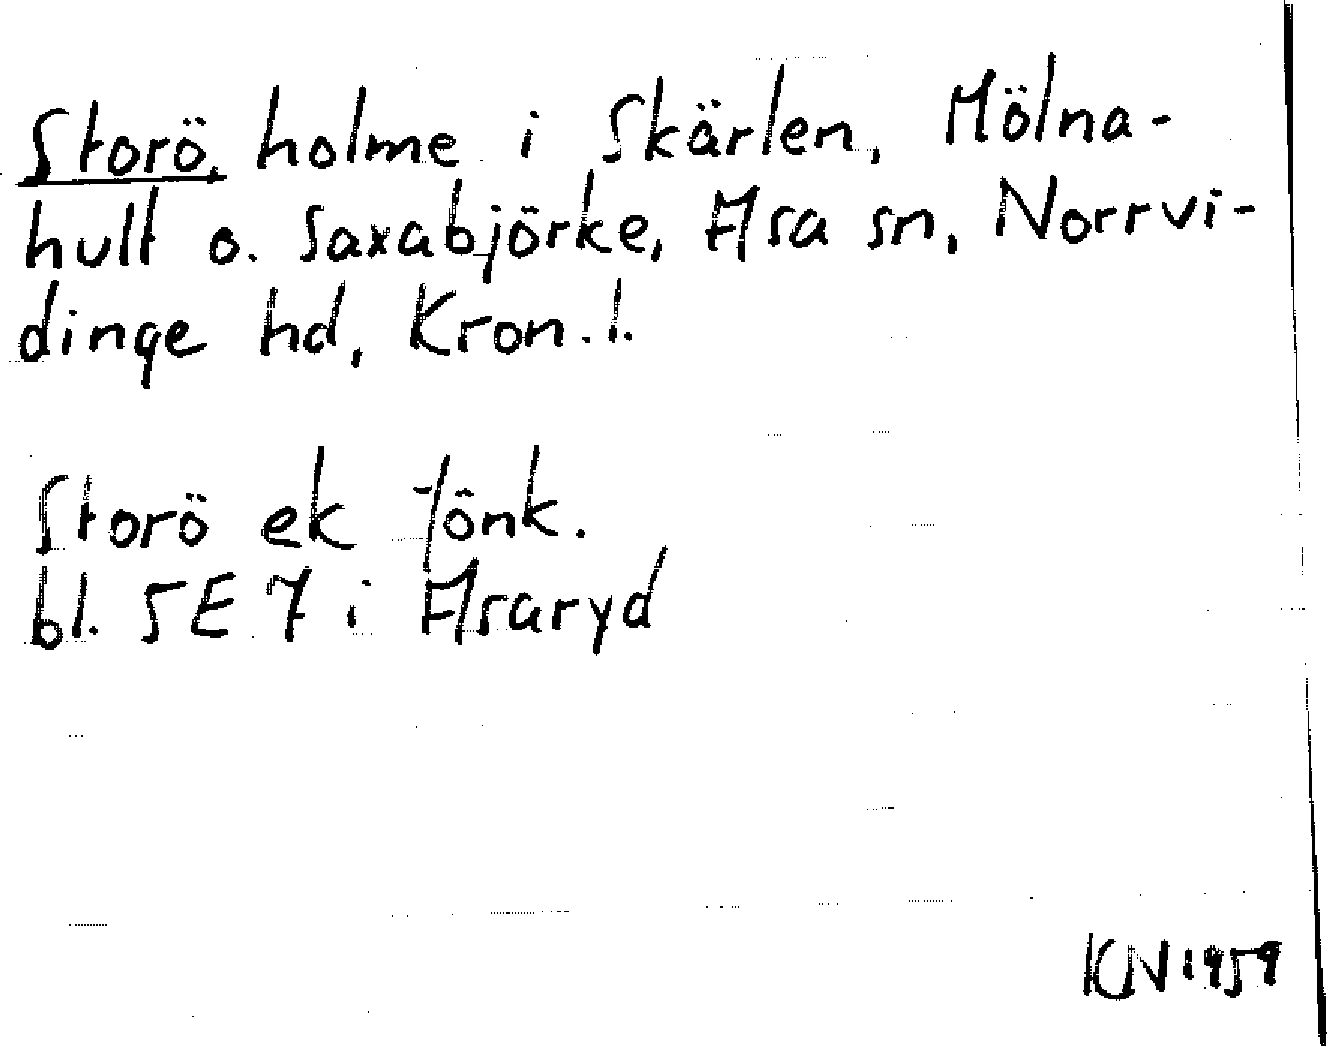 Storö, holme i Skärlen, Mölna-
hult o. Saxabjörke, Asa sn, Norrvi-
dinge hd, Kron.l.
Storö ek fönk.
bl. 5E7 i Asaryd
KN 1959